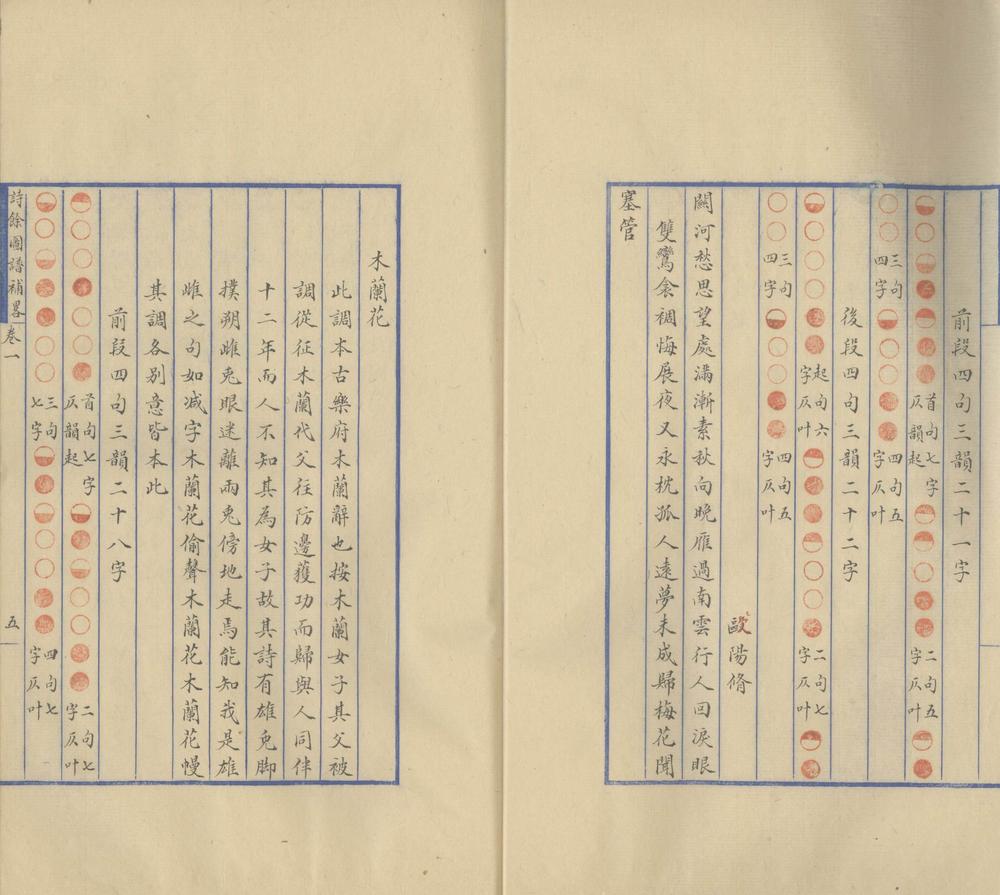 前段四句三韻二十一字
首句七字仄韻起 二句五字仄叶
三句四字 四句五字仄叶
後段四句三韻二十二字
起句六字仄叶 二句七字仄叶
三句四字 四句五字仄叶
歐陽脩
關河愁思望處滿漸素秋向晚雁過南雲行人回淚眼
雙鸞衾裯悔展夜又永枕孤人遠夢未成歸梅花聞
塞管
木蘭花
此調本古樂府木蘭辭也按木蘭女子其父被
調從征木蘭代父往防邊獲功而歸與人同伴
十二年而人不知其為女子故其詩有雄兔脚
撲朔雌兔眼迷離兩兔傍地走焉能知我是雄
雌之句如减字木蘭花偷聲木蘭花木蘭花幔
其調各別意皆本此
前段四句三韻二十八字
首句七字仄韻起 二句七字仄叶
三句七字 四句七字仄叶
詩餘圖譜補畧 卷一 五